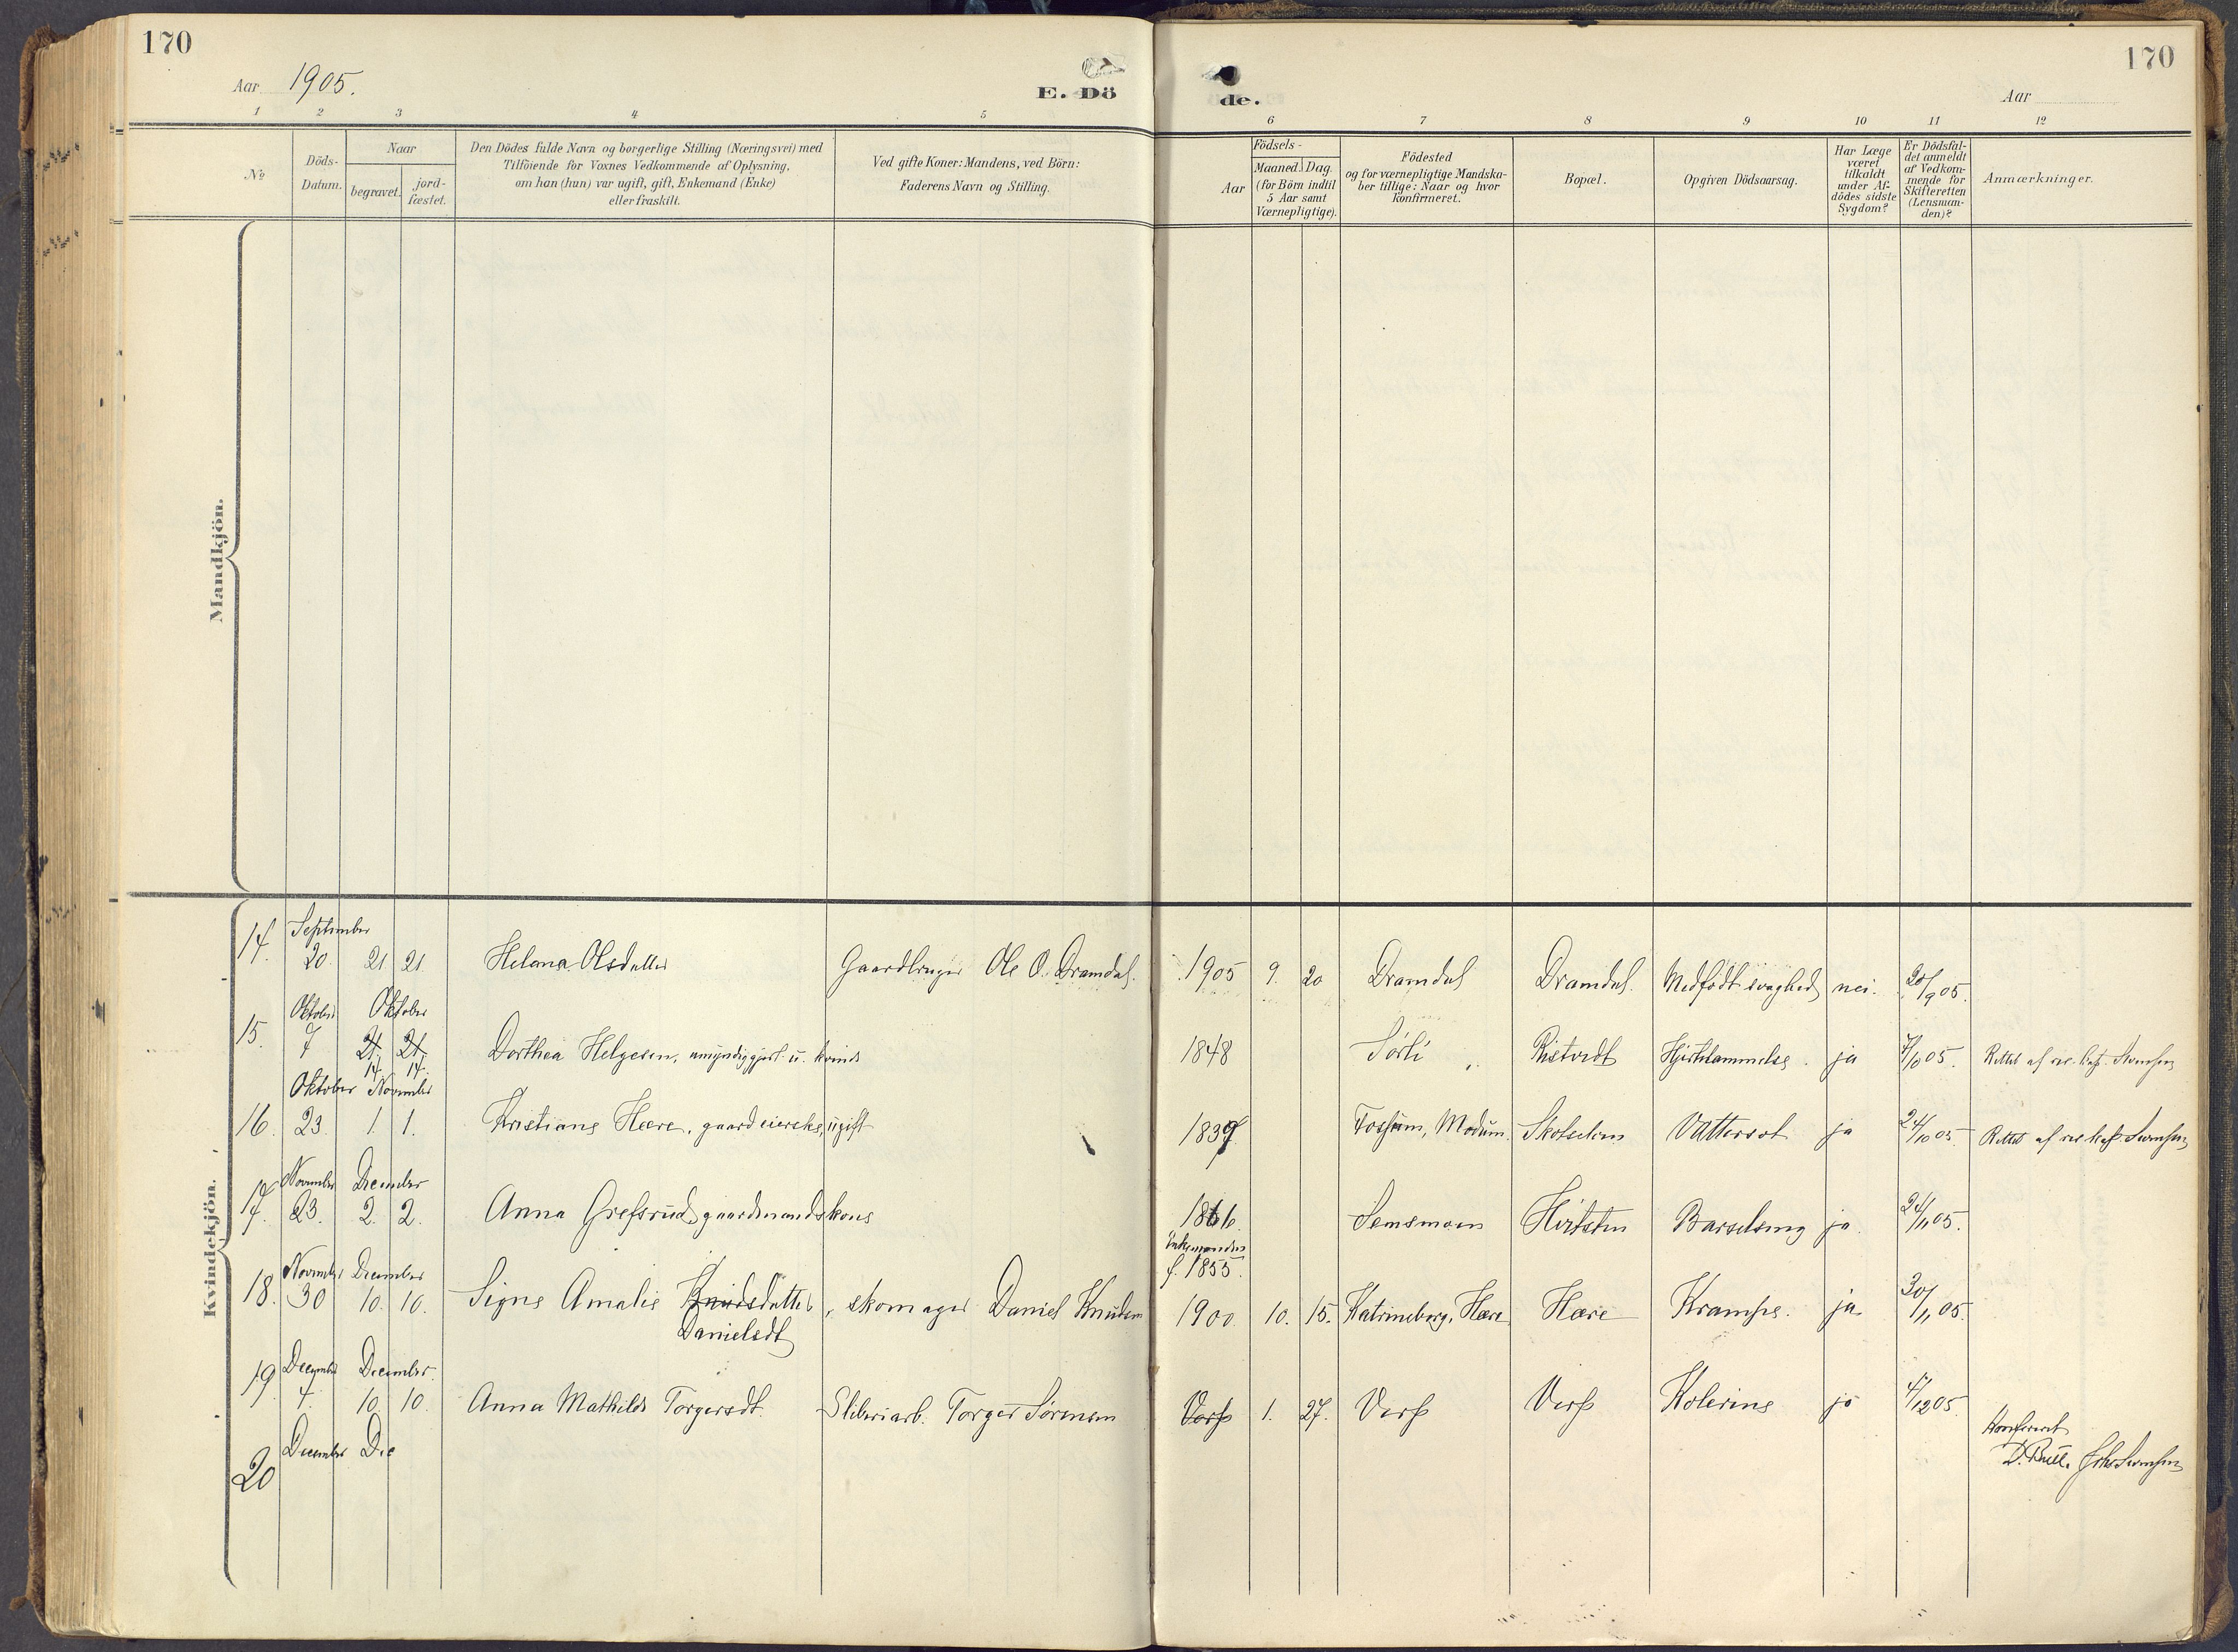 170
170
Aar 1905.
E. Dö
de.
Aar
1 2 3 4 5 6 7 8 9 10 11 12
№
Döds-
Datum.
Naar
begravet.
jord-
fæstet.
Den Dödes fulde Navn og borgerlige Stilling (Næringsvei) med
Tilföiende for Voxnes Vedkommende af Oplysning,
om han (hun) var ugift, gift, Enkemand (Enke)
eller fraskilt.
Ved gifte Koner: Mandens, ved Börn:
Faderens Navn og Stilling.
Födsels-
Aar
Maaned. Dag.
(for Börn indtil
5 Aar samt
Værnepligtige).
Födested
og for værnepligtige Mandska-
ber tillige: Naar og hvor
konfirmeret.
Bopæl.
Opgiven Dödsaarsag.
Har Læge
været
tilkaldt
under Af-
dödes sidste
Sygdom?
Er Dödsfal-
det anmeldt
af Vedkom-
mende for
Skifteretten
(Lensman-
den)?
Anmærkninger.
Mandkjön.
Kvindekjön.
September
14. 20. 21 21. Helena Olsdatter Gaardbruger Ole O. Dramdal. 1905 9. 20 Dramdal Dramdal. Medfødt svaghed nei. 20/9 05.
Oktober Oktober
15. 7 21. 21. Dorthea Helgesen, umyndiggjort u. kvinde 1848 Sørli Ristvedt Hjertelammelse. ja 7/10 05. Rettet af res. kap. Svensen
14. 14.
Oktober November
16. 23. 1. 1. Kristiane Hære, gaardeierske, ugift 1839 Fossum, Modum. Skotselven Vattersot ja 24/10 05. Rettet af res. kap. Svensen
November December
17. 23. 2. 2. Anna Grefsrud, gaardmandskone 1866. Semsmoen Hvitsten Barselseng ja. 24/11 05.
Enkemanden
f. 1855.
November December
18. 30 10. 10. Signe Amalie Knudsdatter, skomager Daniel Knudsen 1900. 10. 15. Katrineborg, Hære Hære Krampe. ja 30/11 05.
Danielsdt
December December.
19. 4. 10. 10. Anna Mathilde Torgersdt. Sliberiarb. Torger Sørensen 1. 27. Kolerine ja 4/12 05.
December De
20
Konfereret
D. Bull. Johs Svensen